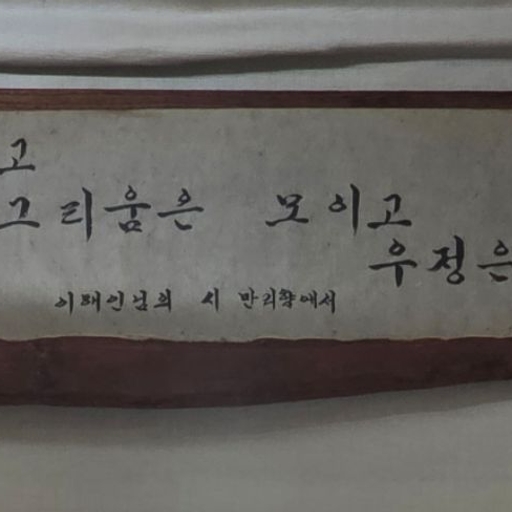 고
그리움은 모이고
우정은
이해인님의 시 만리향에서